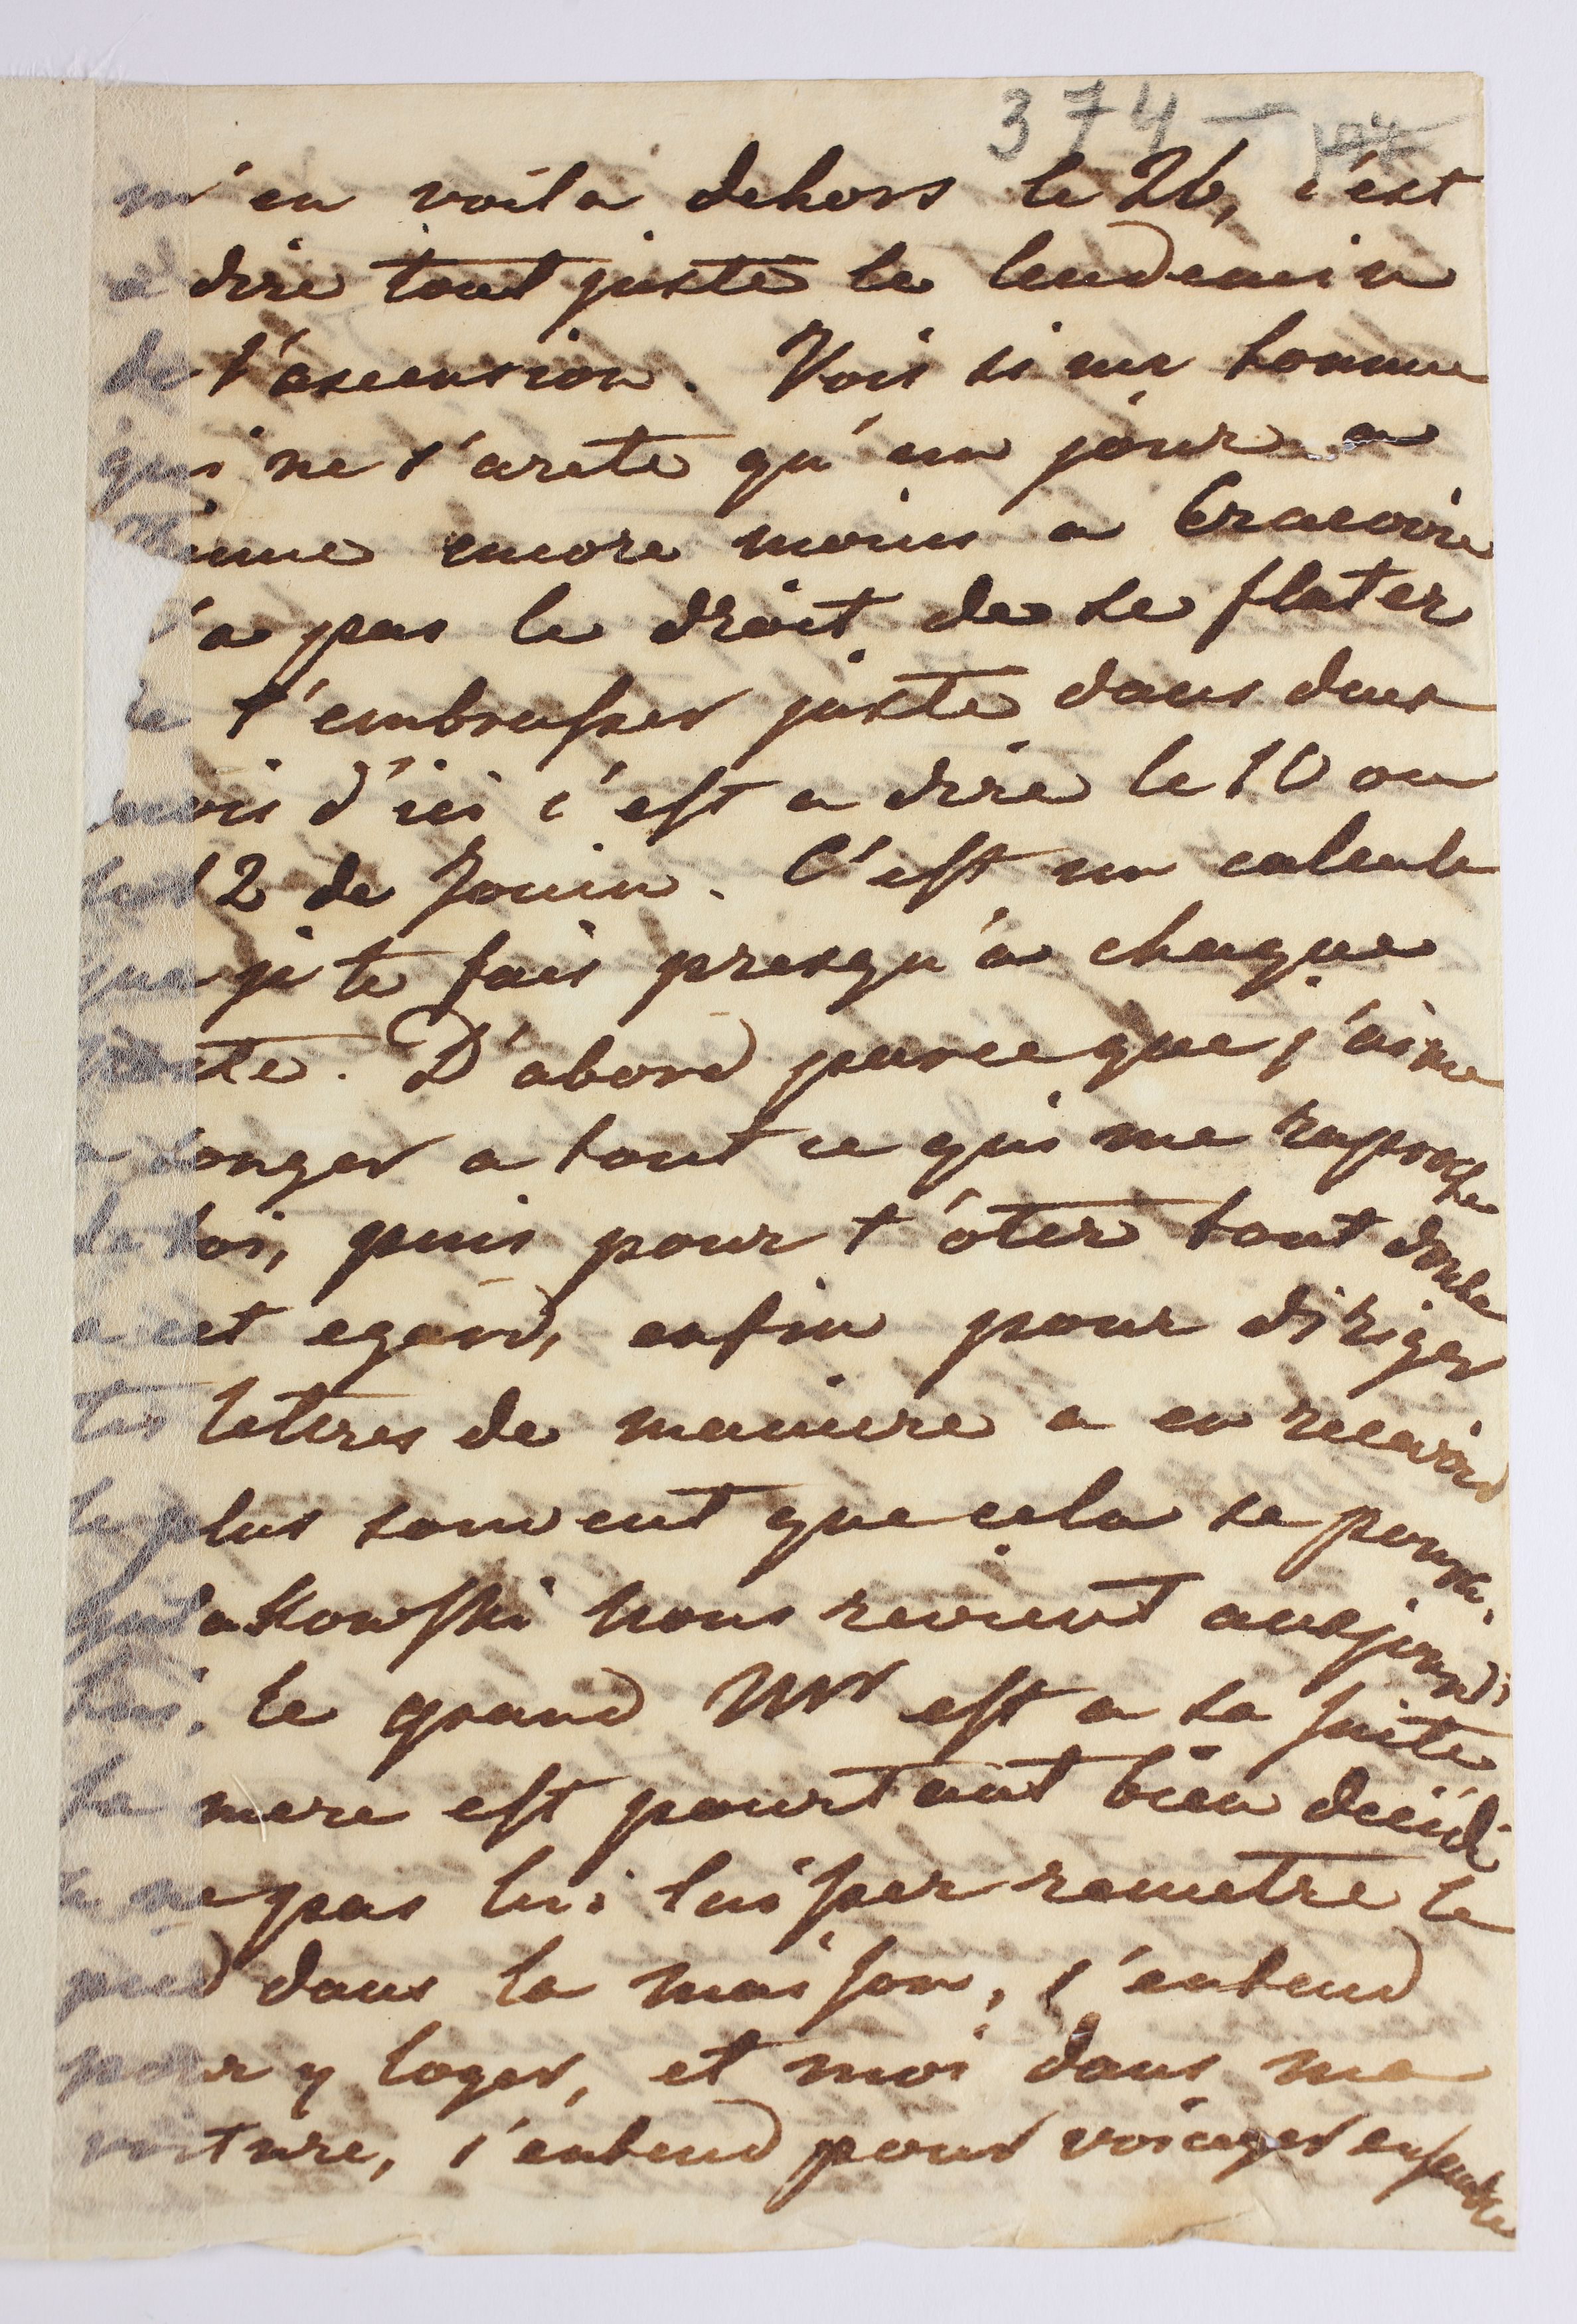 374 —
m'en voila dehors le 26, c'est
a dire tout juste le lendemain
de l'ascension. Vois si un homme
qui ne s'arete qu'un jour a
ienne encore moins a Cracovie
'a pas le droit de se flater
de t'embrasser juste dans deux
mois d'ici c'est a dire le 10 ou
le 12 de Jouin. C'est un calcule
que je te fais presqu'a chaque
poste. D'abord parceque j'aime
a songer a tout ce qui me raproche
de toi, puis pour t'ôter tout doute
a cet egard, enfin pour diriger
tes lettres de maniere a en recevoir
le plus souvent que cela se pourra.
akowski nous revient aujourd'
hui, le grand Mr est a sa suite
Sa mere est pourtant bien decidé
a ne pas lui laisser remetre le
pied dans la maison, s'entend
pour y loger, et moi dans ma
voiture, s'entend pour voiager ensemble